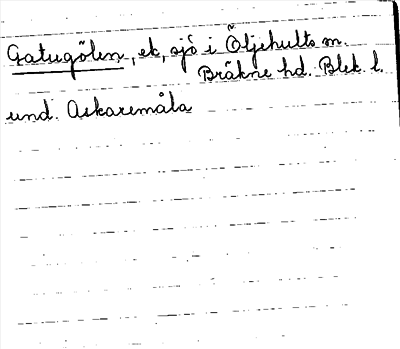 Gatugölen, ek, sjö i Öljehults sn.
Bräkne hd. Blek. l.
und. Askaremåla